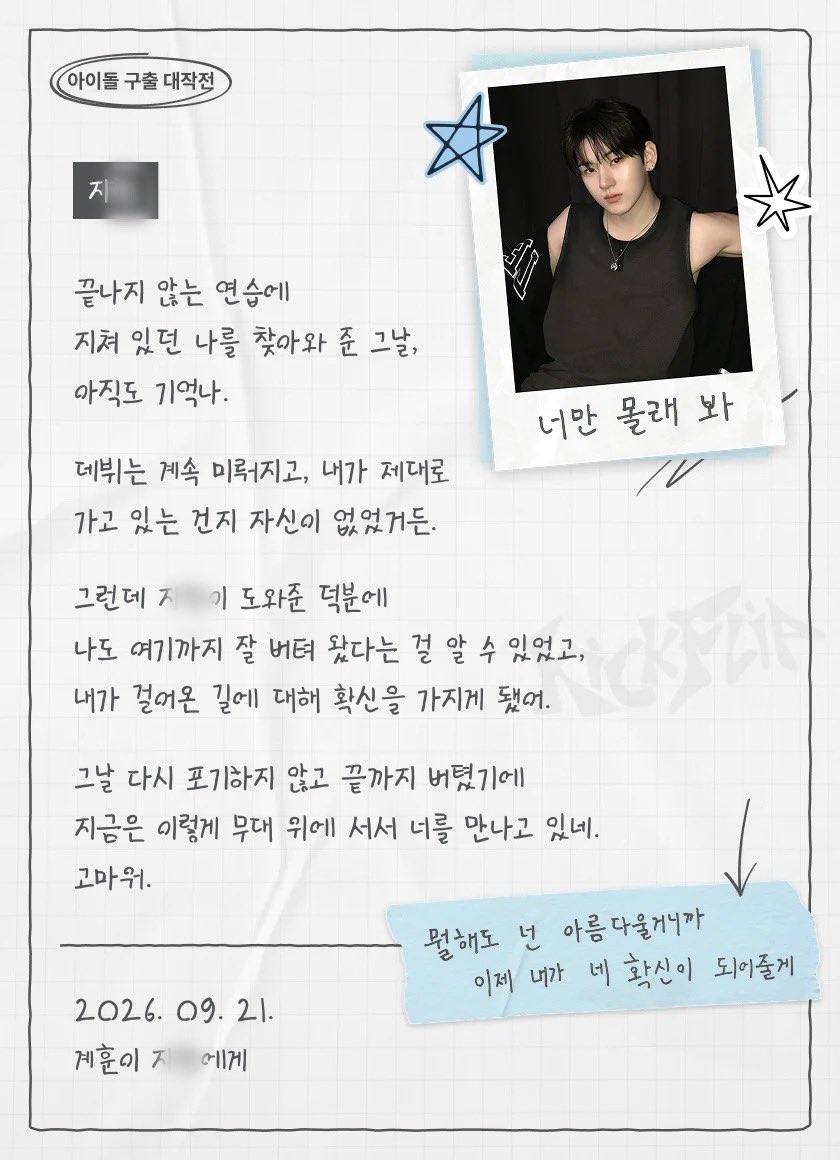 아이돌 구출 대작전
지
너만 몰래 봐
끝나지 않는 연습에
지쳐 있던 나를 찾아와 준 그날,
아직도 기억나.
데뷔는 계속 미뤄지고, 내가 제대로
가고 있는 건지 자신이 없었거든.
그런데 지 이 도와준 덕분에
나도 여기까지 잘 버텨 왔다는 걸 알 수 있었고,
내가 걸어온 길에 대해 확신을 가지게 됐어.
KickFlip
그날 다시 포기하지 않고 끝까지 버텼기에
지금은 이렇게 무대 위에 서서 너를 만나고 있네.
고마워.
뭘해도 넌 아름다울거니까
이제 내가 네 확신이 되어줄게
2026. 09. 21.
계훈이 지 에게